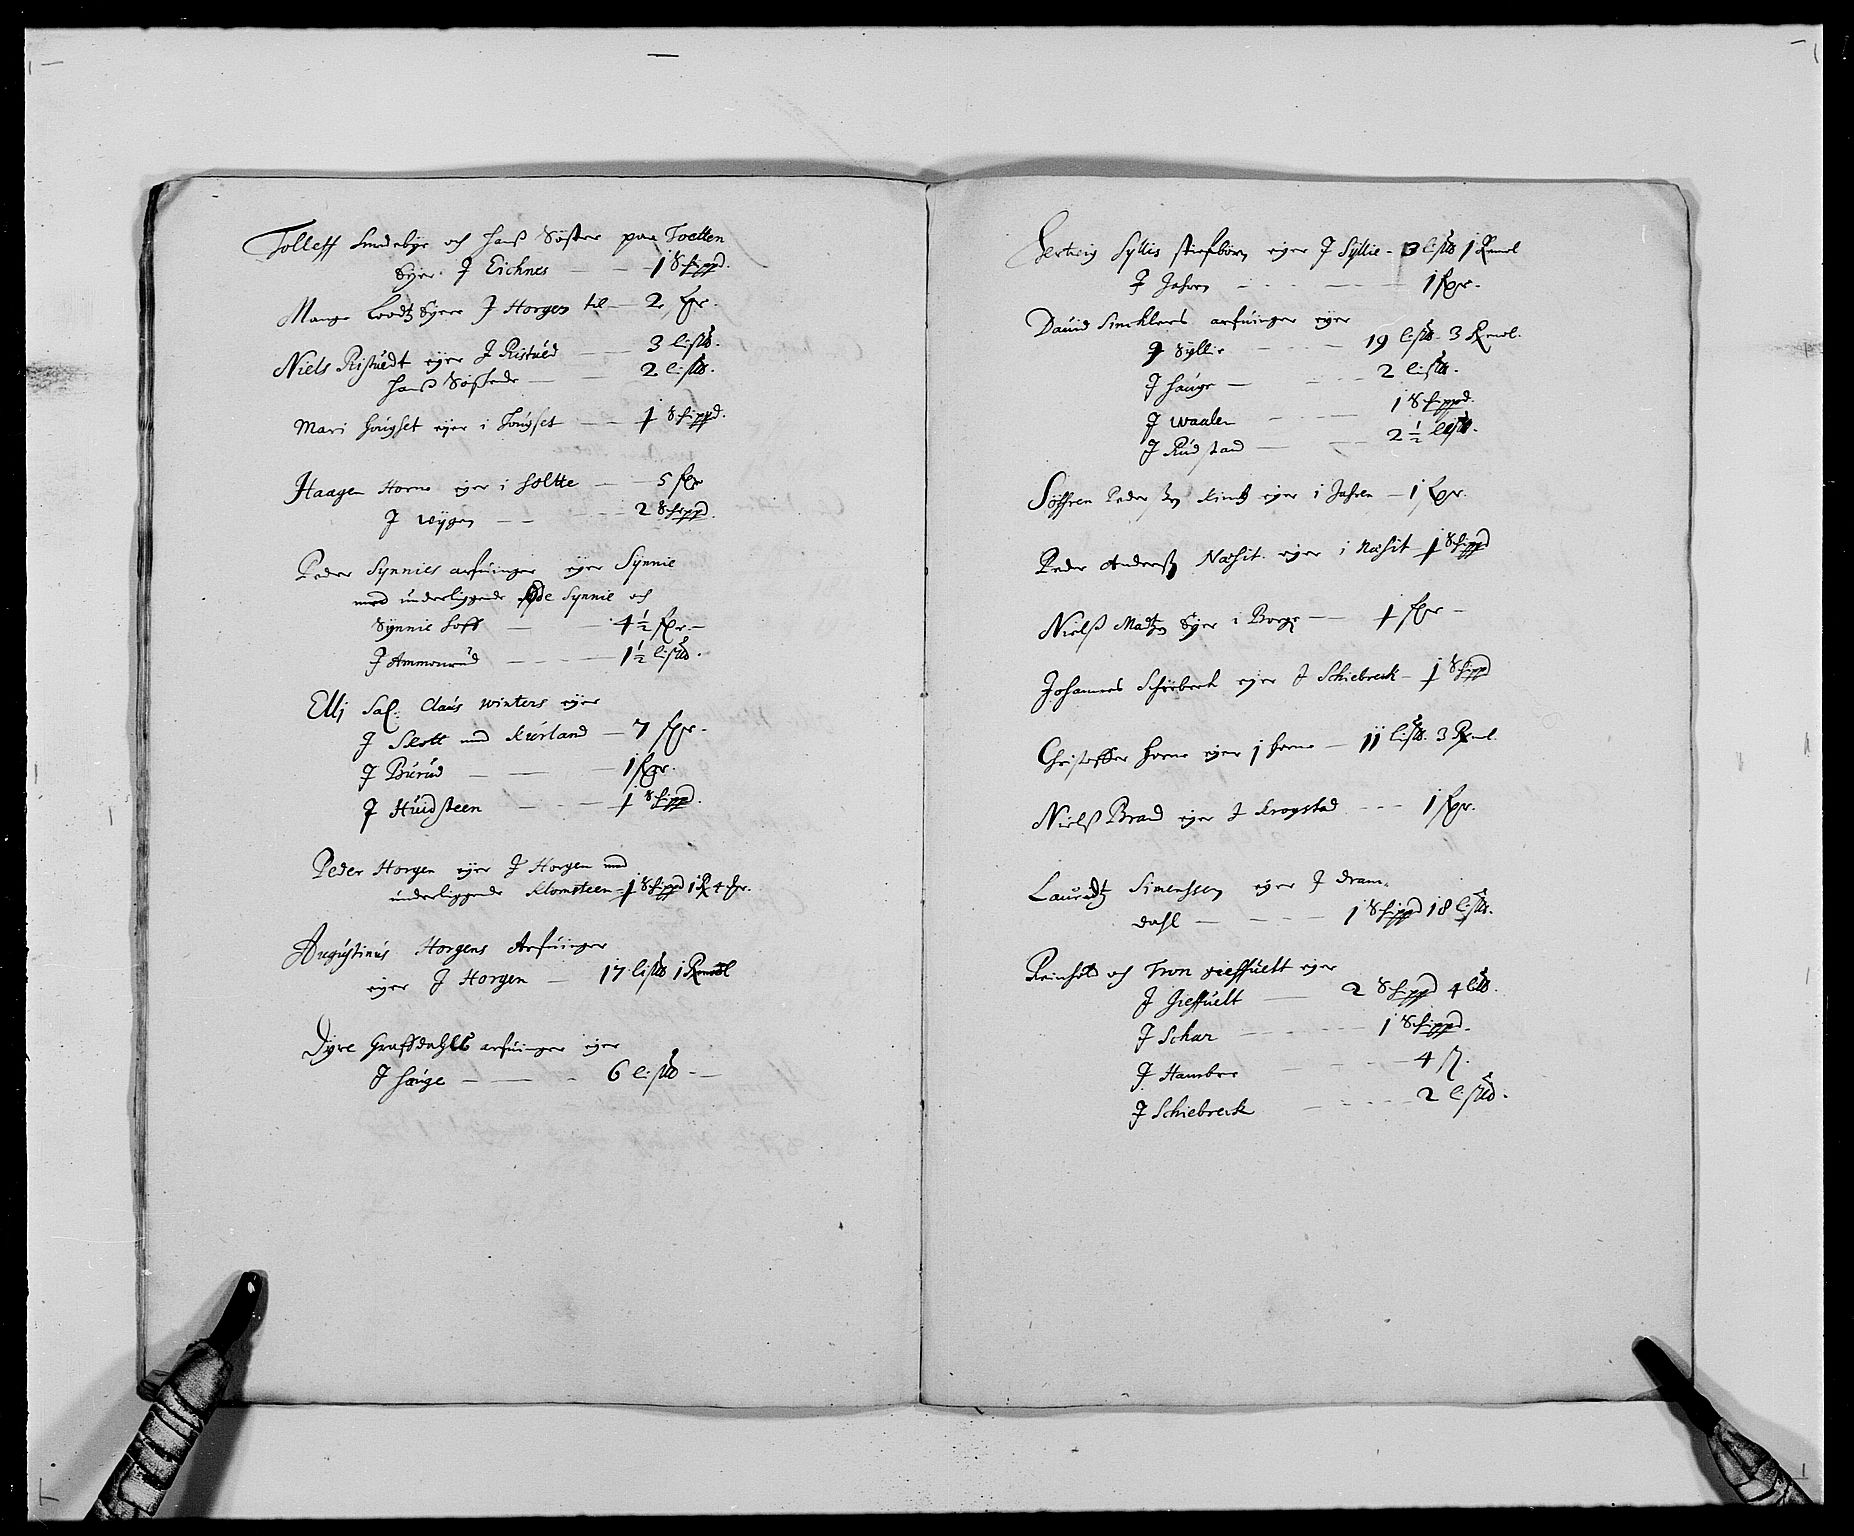 Tolleff Smedebye och hans Søster paa Toetten
Eyer J Eichnes — — 1 Schippd.
Mange Eyer J Horgen til — 2 fxr.
Niels Ristuedt eyer J Ristued — — 3 lispd.
hans Søskede — — 2 lispd.
Mari Hougset eyer i Hougset — — 1 Schippd.
Haagen Horne eyer i holtte — — 5 fxr
J wijgen — — — 2 Schippd.
Peder Synnies arfuinger eyer Synnie
med underliggende øde Synnie och
Synnie hoff — — 4½ fxr. —
J Ammonrud — — — 1½ lispd.
Elli Sal: Claus winters eyer
J Slott med Kurland — 7 fxr.
J Burud — — — 1 fxr.
J Huidsteen — — — 1 Schippd.
Peder Horgen eyer J Horgen med
underliggende Klomsteen — 1 Schippd 1 R 4 fxr.
Augustinus Horgens Arfuinger
eyer J Horgen — 17 lispd 1 Remol
Dyre Graffdahls arfuinger eyer
J hauge — — — 6 lispd —
Hertvig Syllis stiefbørn eyer J Syllie - 3 lispd 1 Remol
J Jahren — — — 1 fxr.
Dauid Sincklers arfuinger eyer
J Syllie — — — 19 lispd. 3 Remol.
J hauge — — — 2 lispd.
J waalen — — — 1 Schippd.
J Rudstad — — — 2½ lispd.
Søffren Peder Sen eyer i Jahren — 1 fxr.
Peder Anderss Næsit. eyer i Næsit — 1 Schippd
Nielss Madtzen Eyer i Borge — — 1 fxr —
Johannes Schiebreck eyer J Schiebreck — 1 Schippd
Christoffer Horne eyer j horne — 11 lispd. 3 Remol.
Nielss Brad eyer J Krogstad — — — 1 fxr.
Lauridtz Simenssen eyer J dram-
dahl — — — 1 Schippd 18 lispd.
Reinholt och Tron Jieffuelt eyer
J Jieffuelt — 2 Schippd 4 lpd.
J Schar — — — 1 Schippd.
J Hambre — — — 4 s.
J Schiebreck — — — 2 lispd.